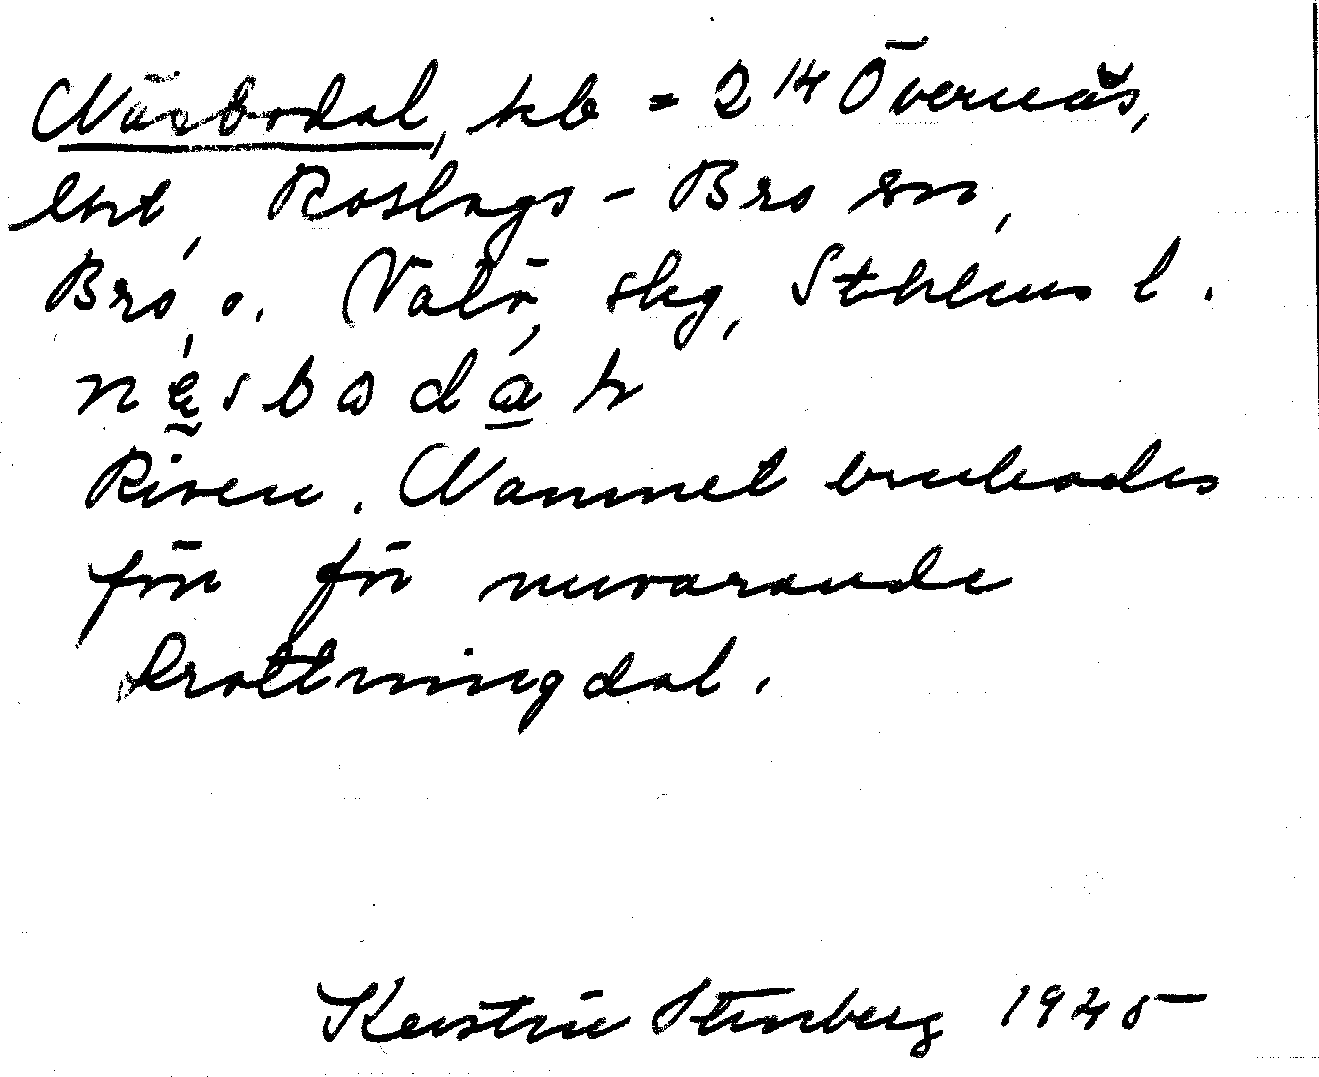 Näsbodal, kb = 2 14 Övernäs,
lht, Roslags-Bro sn,
Bro o. Vätö skg, Sthlms l.
näsbodàḷ
Riven. Namnet brukades
förr för nuvarande
Drottningdal.
Kerstin Stenberg 1945